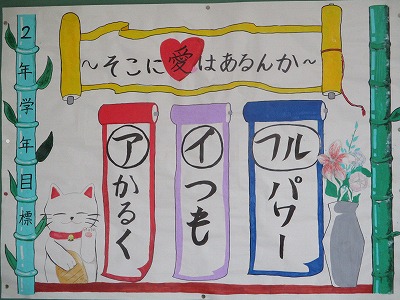 2年学年目標
~そこに愛はあるんか~
アかるく
イつも
フルパワー